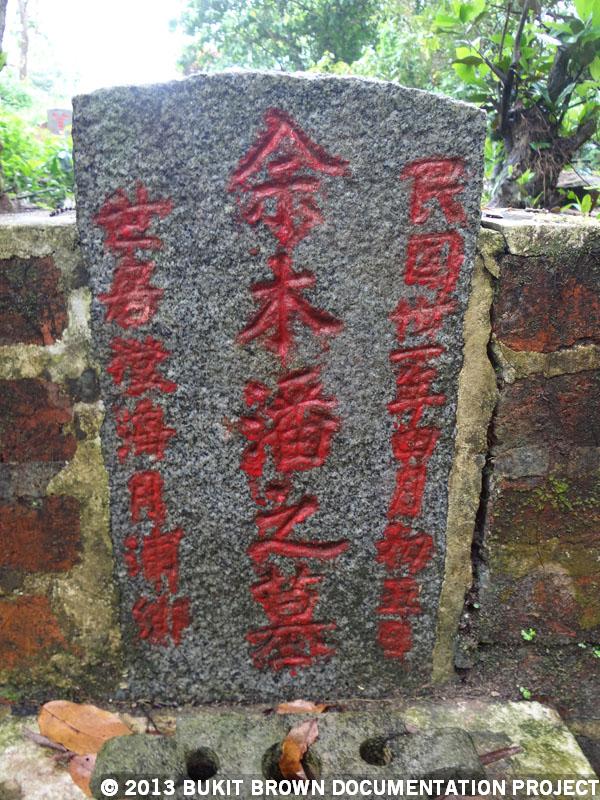 民國廿一年四月初五日
佘木潘之墓
世居澄海月浦鄉
© 2013 BUKIT BROWN DOCUMENTATION PROJECT